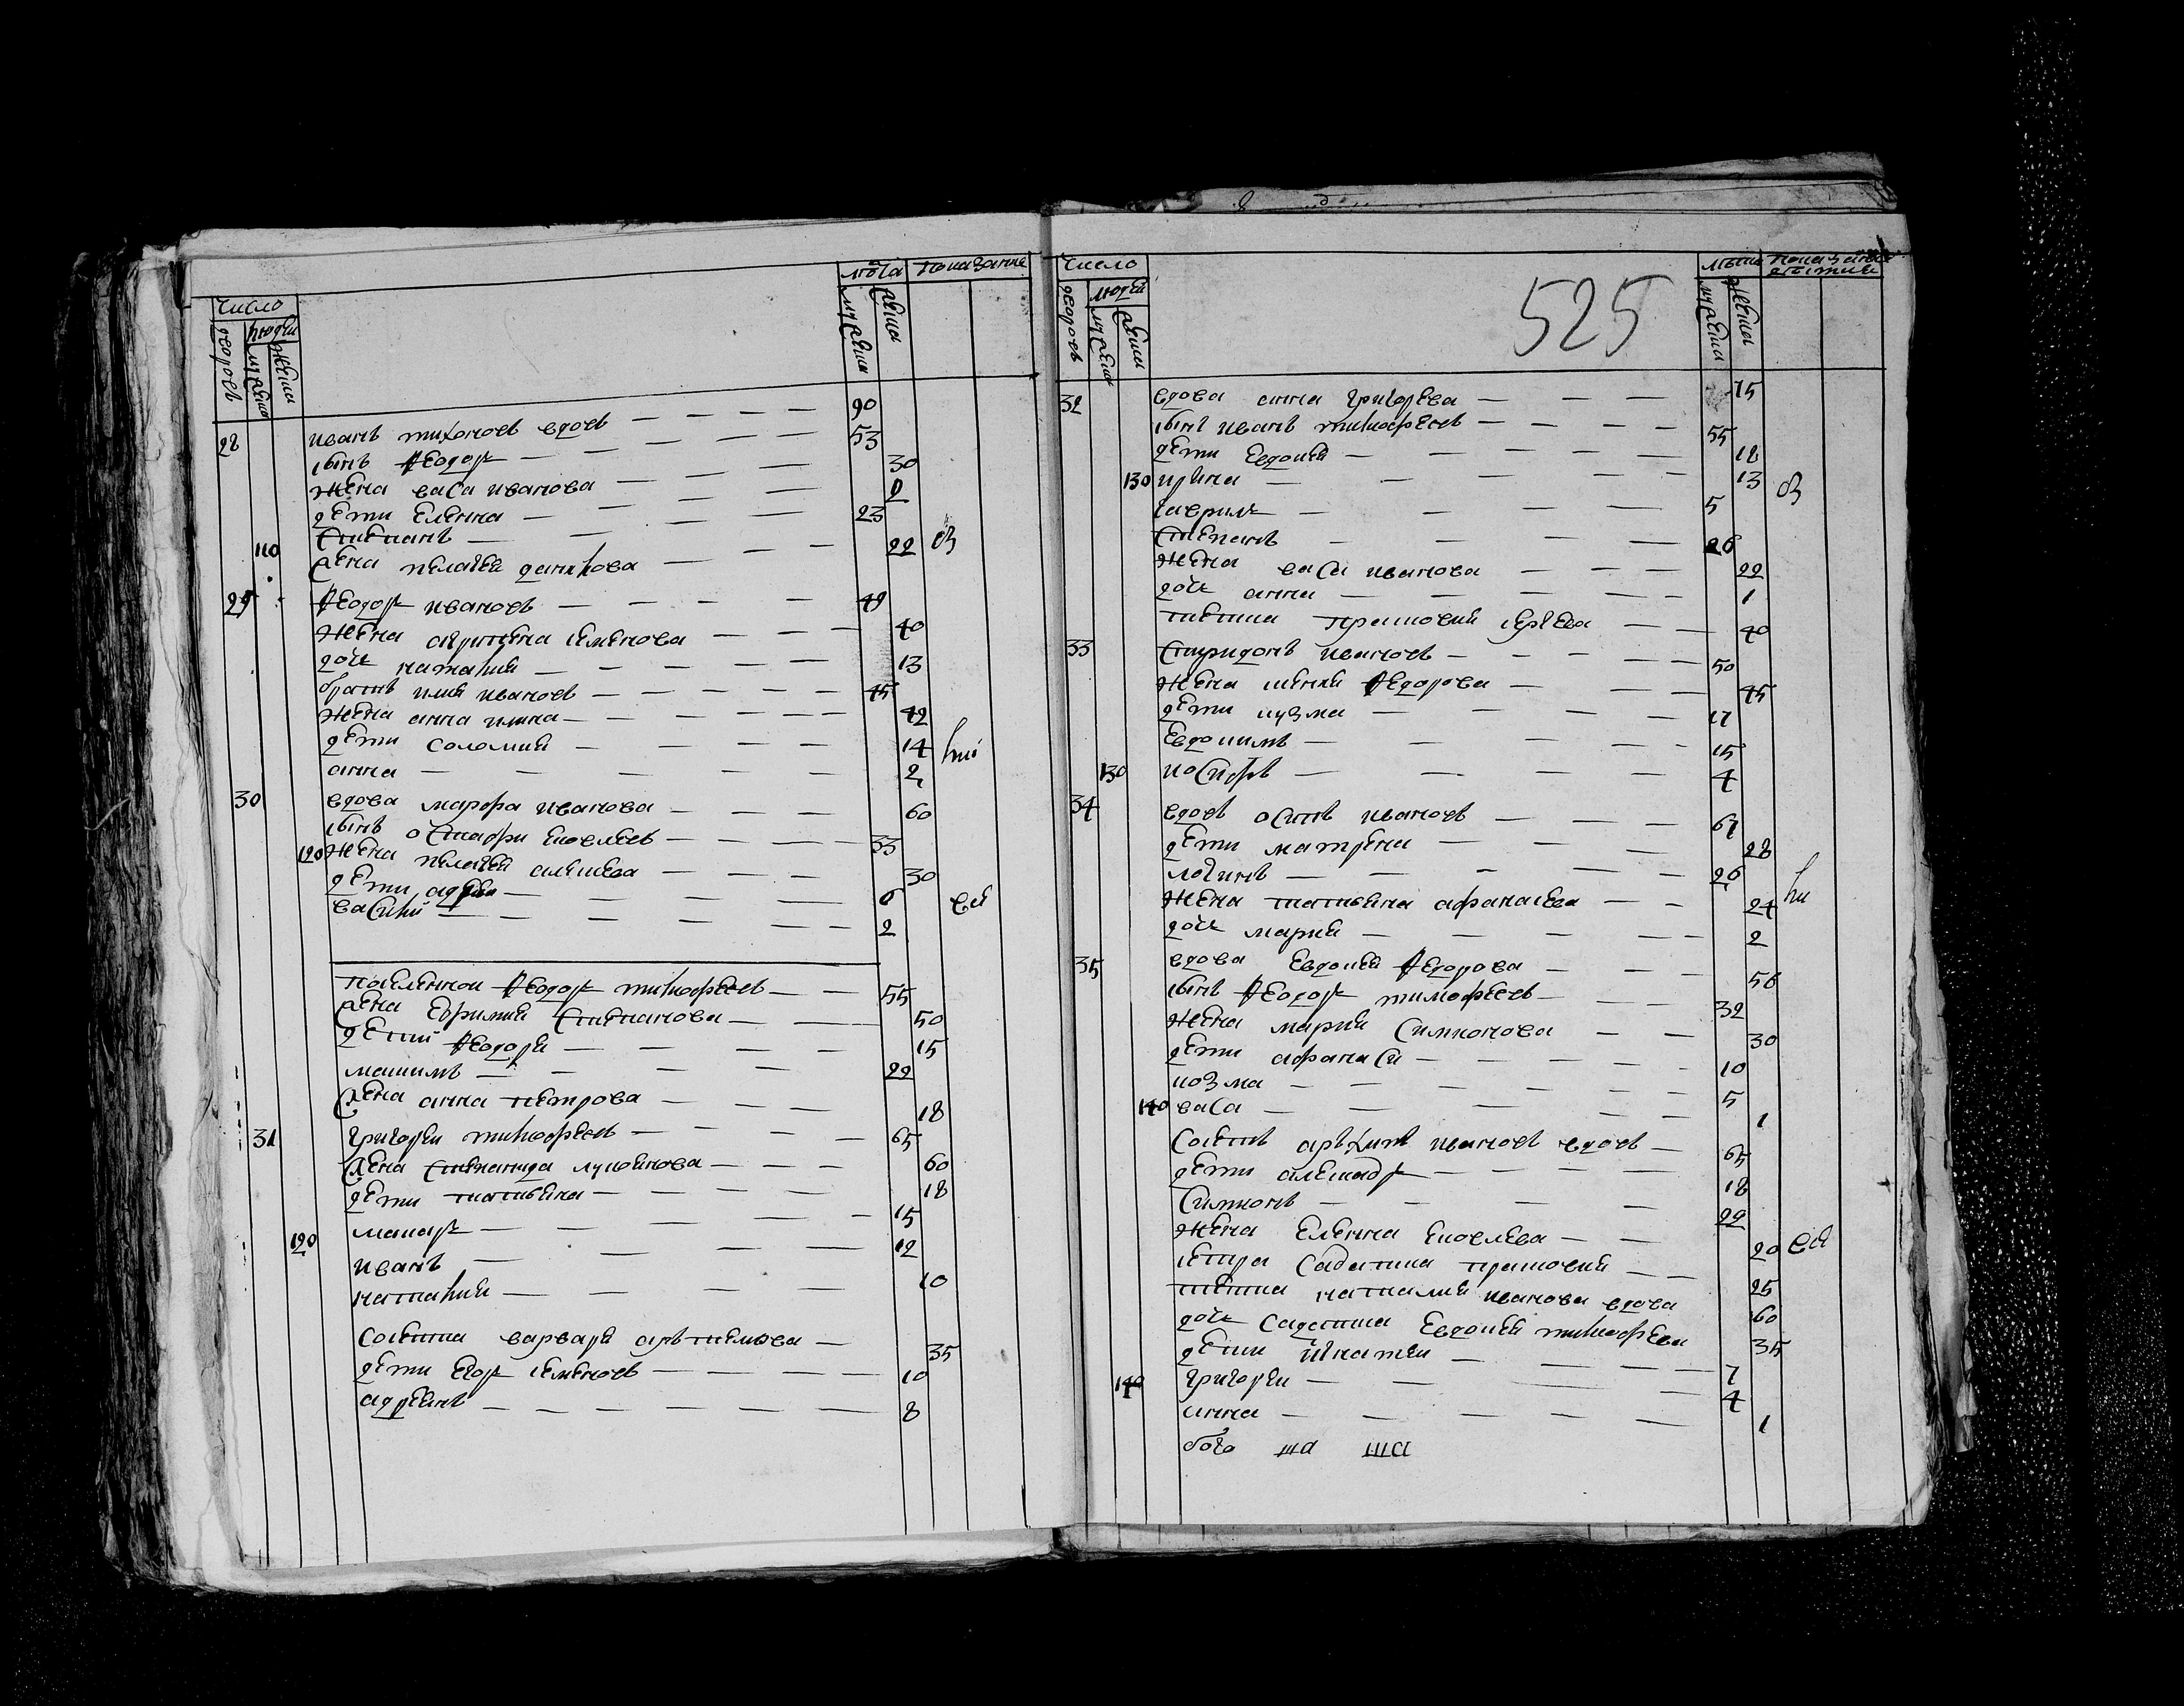 число
людеи
дворовъ
мужеска
женска
лета
показание
мужеска
женска
28 иванъ тихоновъ вдовъ — — — — 90
сынъ феодоръ — — — — 53
жена васса иванова — — — 30
дети елена — — —
степанъ — — — 23
110 жена пелагея данилова — — 22
29 феодоръ ивановъ — — — — 49
жена агрипена семенова — — — 40
дочь наталия — — — — 13
братъ илия ивановъ — — — — 45
жена анна илина — — — — 42
дети соломия — — — — 14
анна — — — — 2
30 вдова марфа иванова — — — 60
сынъ остафи яковлевъ — — — 33
120 жена пелагея алексеева — — — 30
дети адриан — — — — 6
василий — — — — 2
поселеннои феодоръ тимофеевъ — — 55
жена ефимия степанова — — — 50
детий феодоръ — — — — 15
максимъ — — — — 22
жена анна петрова — — — 18
31 григореи тимофеевъ — — — — 65
жена степанида лукоянова — — — 60
дети татьяна — — — — 18
макаръ — — — — 15
120 иванъ — — — — 12
наталия — — — — 10
солдатка варвара артемьева — 35
дети егоръ семеновъ — — — — 10
адреянъ — — — — — — 8
525
число
людеи
дворовъ
мужеска
женска
лета
показание
мужеска
женска
32 вдова анна григорьева — — — 75
сынъ иванъ тимофеевъ — — — — 55
дети евдокия — — — — — 18
130 ирина — — — — 13
гаврилъ — — — — 5
степанъ — — — — 26
жена васса иванова — — — 22
дочь анна — — — — — 1
тетка прасковия — — 40
33 спиридонъ ивановъ — — — — — 50
жена феодорова — — — 45
дети кузма — — — — 17
евдокимъ — — — — 15
130 иосифъ — — — — 4
34 вдовъ осипъ ивановъ — — — 67
дети матрена — — — — 28
логинъ — — — — 26
жена татьяна афанасева — — 24
дочь мария — — — — — 2
35 вдова евдокия феодорова — — 56
сынъ феодоръ тимофеевъ — — — 32
жена мария симионова — — 30
дети афанаси — — — — — 10
козма — — — — — 5
140 васса — — — — — 1
ивановъ вдовъ — 65
дети алексадръ — — — — 18
симионъ — — — — 22
жена елена яковлева — — 20
сестра салдатка прасковия — — 25
тетка наталия иванова вдова 60
дочь салдатка евдокия тимофеева 35
дети игнатеи — — — — 7
140 григореи — — — — 4
анна — — — — — 1